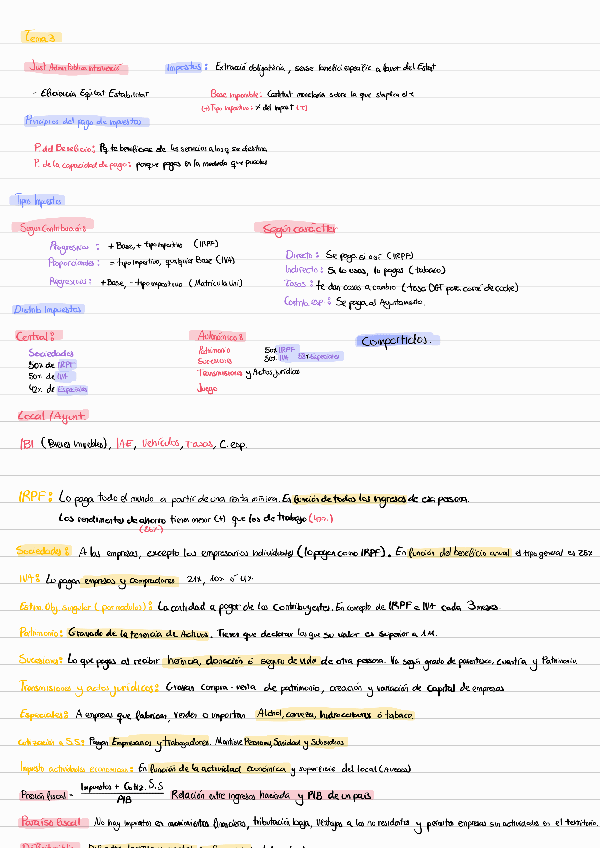 Tema 3
Just. Admin Pública intervenció
Impuestos: Extracción obligatoria, sense benefici específic a favor del Estat
- Eficiencia Equitat Estabilitat
Base imponible: Cantitat monetaria sobre la que s'aplica el x
(t) Tipo impositivo: % del impost (T)
Principios del pago de impuestos
P. del Beneficio: Pq te beneficias de los servicios a los q se destina
P. de la capacidad de pago: porque pagas en la medida que puedes
Tipos Impuestos
Según Contribución
Según carácter
Progresivos: + Base, + tipo impositivo (IRPF)
Proporcionales: = tipo impositivo, cualquier Base (IVA)
Regresivos: + Base, - tipo impositivo (Matrícula Uni)
Directo: Se paga sí o sí (IRPF)
Indirecto: Si lo usas, lo pagas (tabaco)
Tasas: te dan cosas a cambio (tasa DGT para carné de coche)
Contrib. esp: Se paga al Ayuntamiento.
Distrib Impuestos
Central:
Sociedades
50% de IRPF
50% de IVA
42% de Especiales
Autonómico:
Patrimonio
Sucesiones
Transmisiones y Actos jurídicos
Juego
50% IRPF
50% IVA 58% Especiales
Compartidos.
Local / Ayunt.
IBI (Bienes Inmuebles), IAE, Vehículos, Tasas, C. esp.
IRPF: Lo paga todo el mundo a partir de una renta mínima. En función de todos los ingresos de esa persona.
Los rendimientos de ahorro tienen menor (t) que los de trabajo (47%)
(26%)
Sociedades: A las empresas, excepto los empresarios individuales (lo pagan como IRPF). En función del beneficio anual el tipo general es 25%
IVA: Lo pagan empresas y compradores 21%, 10% ó 4%
Estima. Obj. singular (por modulos): La cantidad a pagar de los Contribuyentes. En concepto de IRPF e IVA cada 3 meses
Patrimonio: Gravado de la tenencia de Activos. Tienes que declarar los que su valor es superior a 1M.
Sucesiones: Lo que pagas al recibir herencia, donación o seguro de vida de otra persona. Va según grado de parentesco, cuantía y Patrimonio.
Transmisiones y actos jurídicos: Gravan compra-venta de patrimonio, creación y variación de capital de empresas
Especiales: A empresas que fabrican, venden o importan Alchol, cerveza, hidrocarburos ó tabaco.
Cotización a S.S: Pagan Empresarios y trabajadores. Mantiene Pensiones, Sanidad y Subsidios
Impuesto actividades economicas: En función de la actividad económica y superficie del local (Auecas)
Presión fiscal = Impuestos + Cotiz. S.S / PIB Relación entre ingresos hacienda y PIB de un país
Paraíso fiscal No hay impuestos en movimientos financieros, tributación baja, Ventajas a los no residentes y permite empresas sin actividades en el territorio.